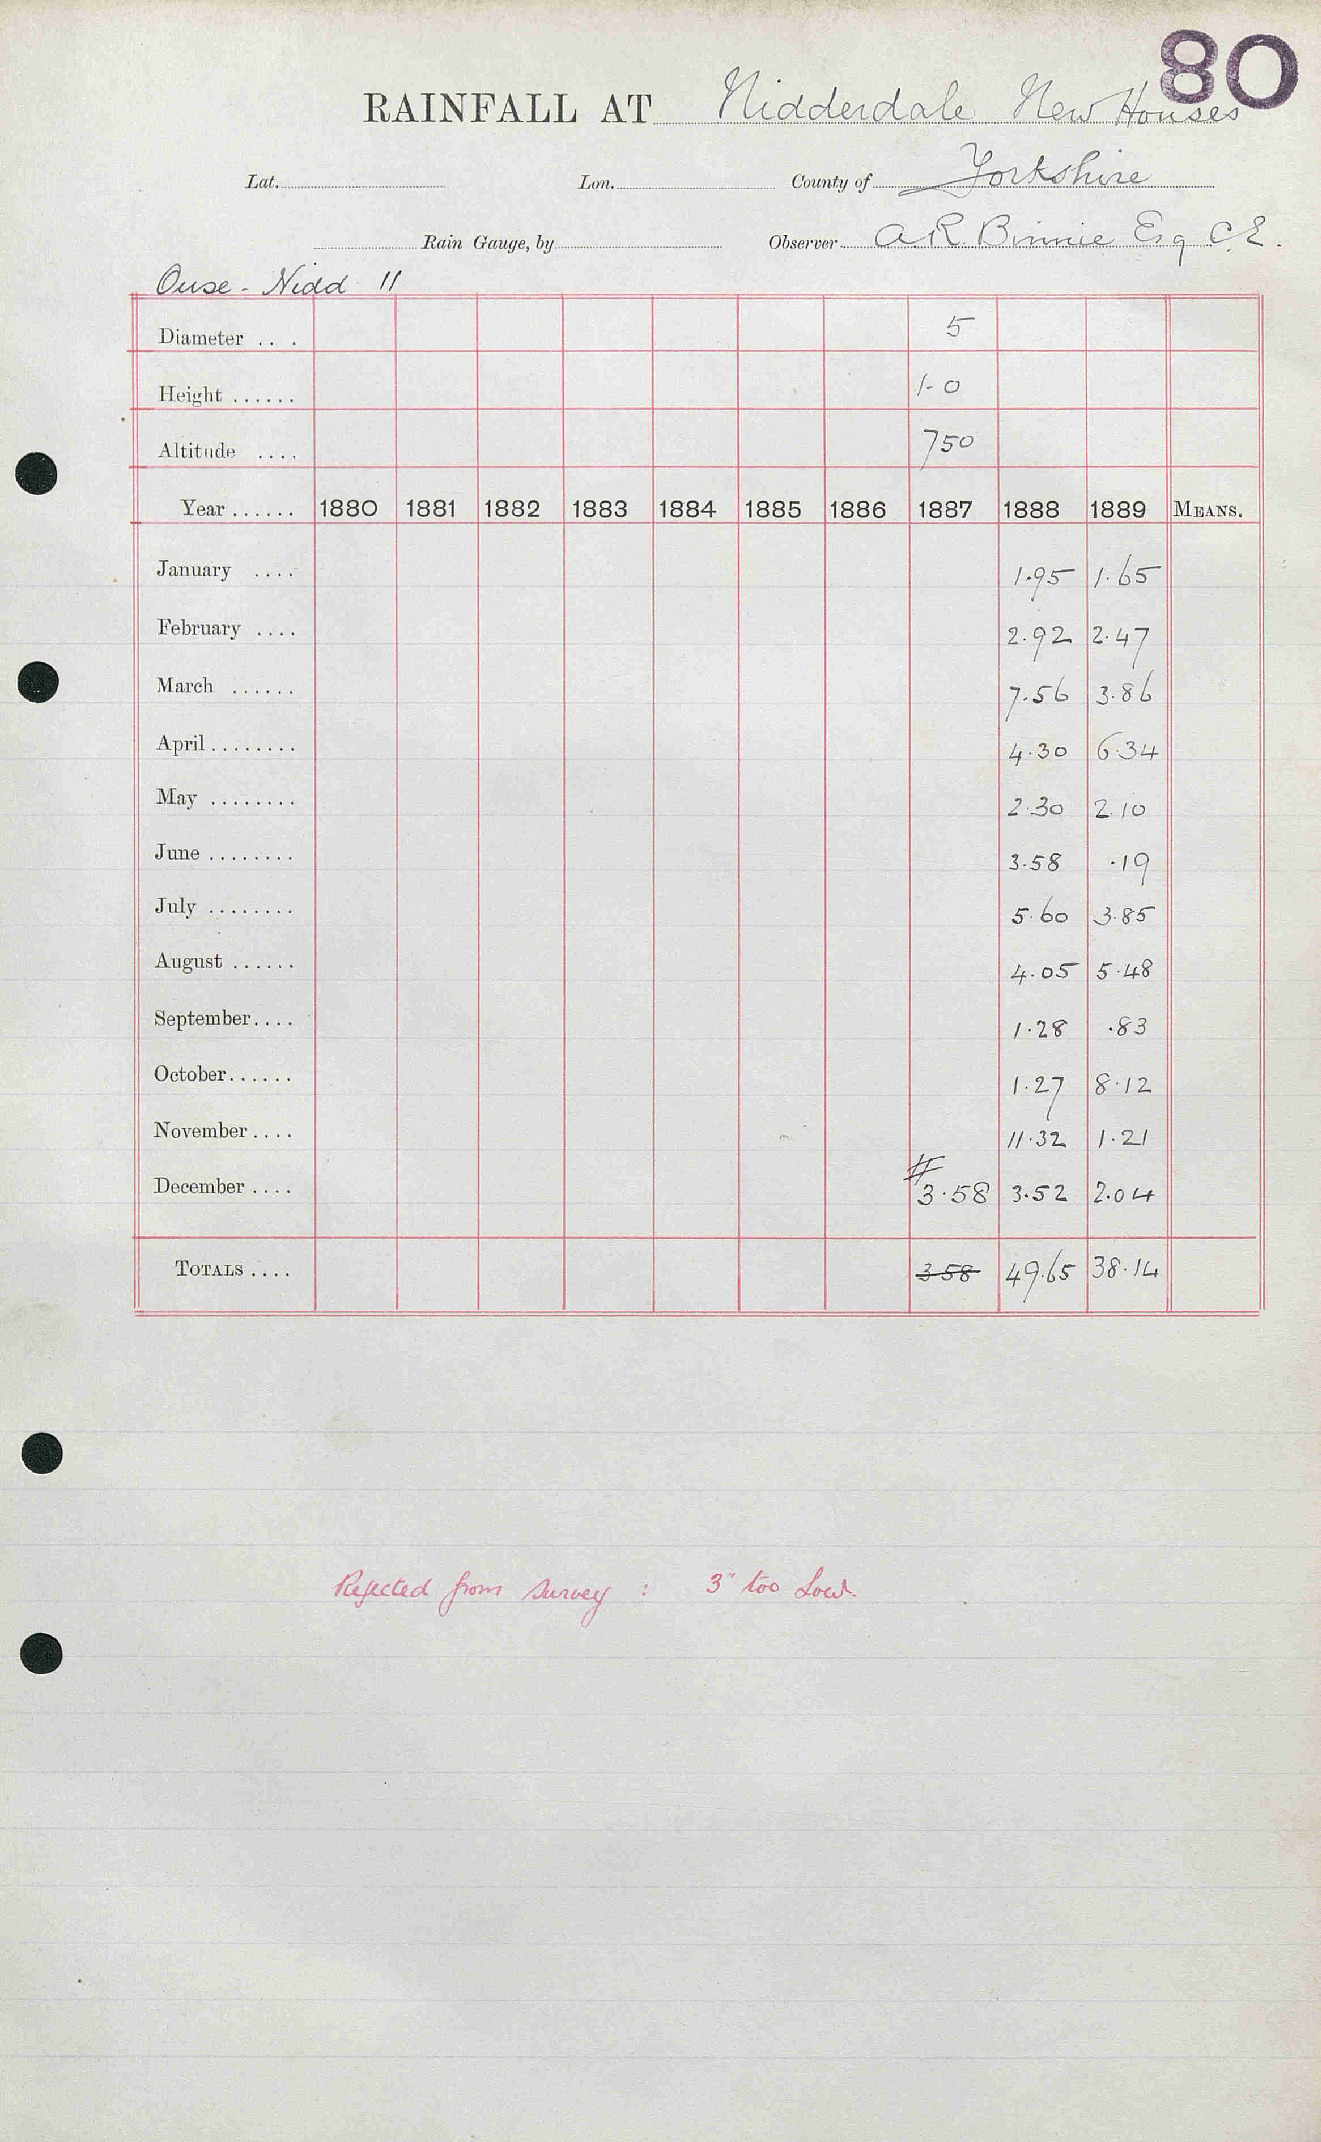 80
RAINFALL AT Nidderdale New Houses
Lat. Lon. County of Yorkshire
Rain Gauge, by Observer A R Binnie Esq C.E.
Ouse - Nidd 11
Diameter .. . 5
Height ...... 1-0
Altitude .... 750
Year ...... 1880 1881 1882 1883 1884 1885 1886 1887 1888 1889 MEANS.
January .... 1.95 1.65
February .... 2.92 2.47
March ...... 7.56 3.86
April ........ 4.30 6.34
May ........ 2.30 2.10
June ........ 3.58 .19
July ........ 5.60 3.85
August ...... 4.05 5.48
September.... 1.28 .83
October...... 1.27 8.12
November.... 11.32 1.21
#
December.... 3.58 3.52 2.04
TOTALS.... 3.58 49.65 38.14
Rejected from survey : 3" too low.